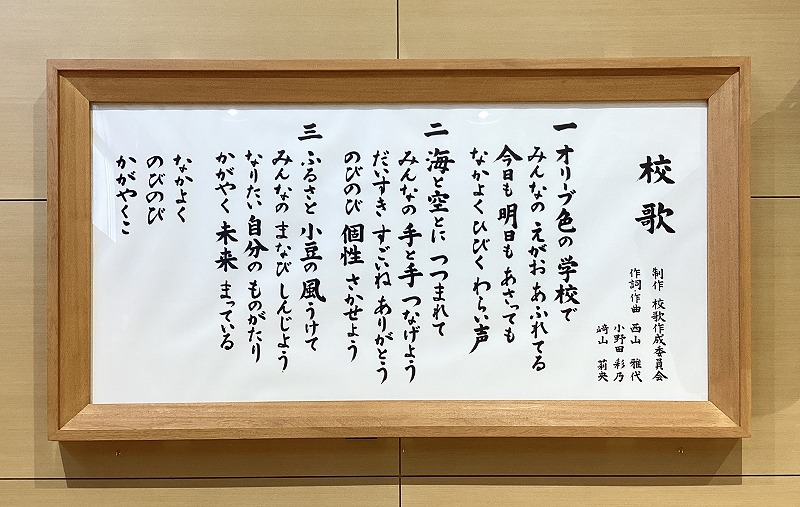 校歌
制作 校歌作成委員会
作詞・作曲 西山 雅代
小野田 彩乃
崎山 莉央
一 オリーブ色の学校で
みんなの えがお あふれてる
今日も 明日も あさっても
なかよく ひびく わらい声
二 海と空とに つつまれて
みんなの 手と手 つなげよう
だいすき すごいね ありがとう
のびのび 個性 さかせよう
三 ふるさと 小豆の 風うけて
みんなの まなび しんじよう
なりたい 自分の ものがたり
かがやく 未来 まっている
なかよく
のびのび
かがやくこ